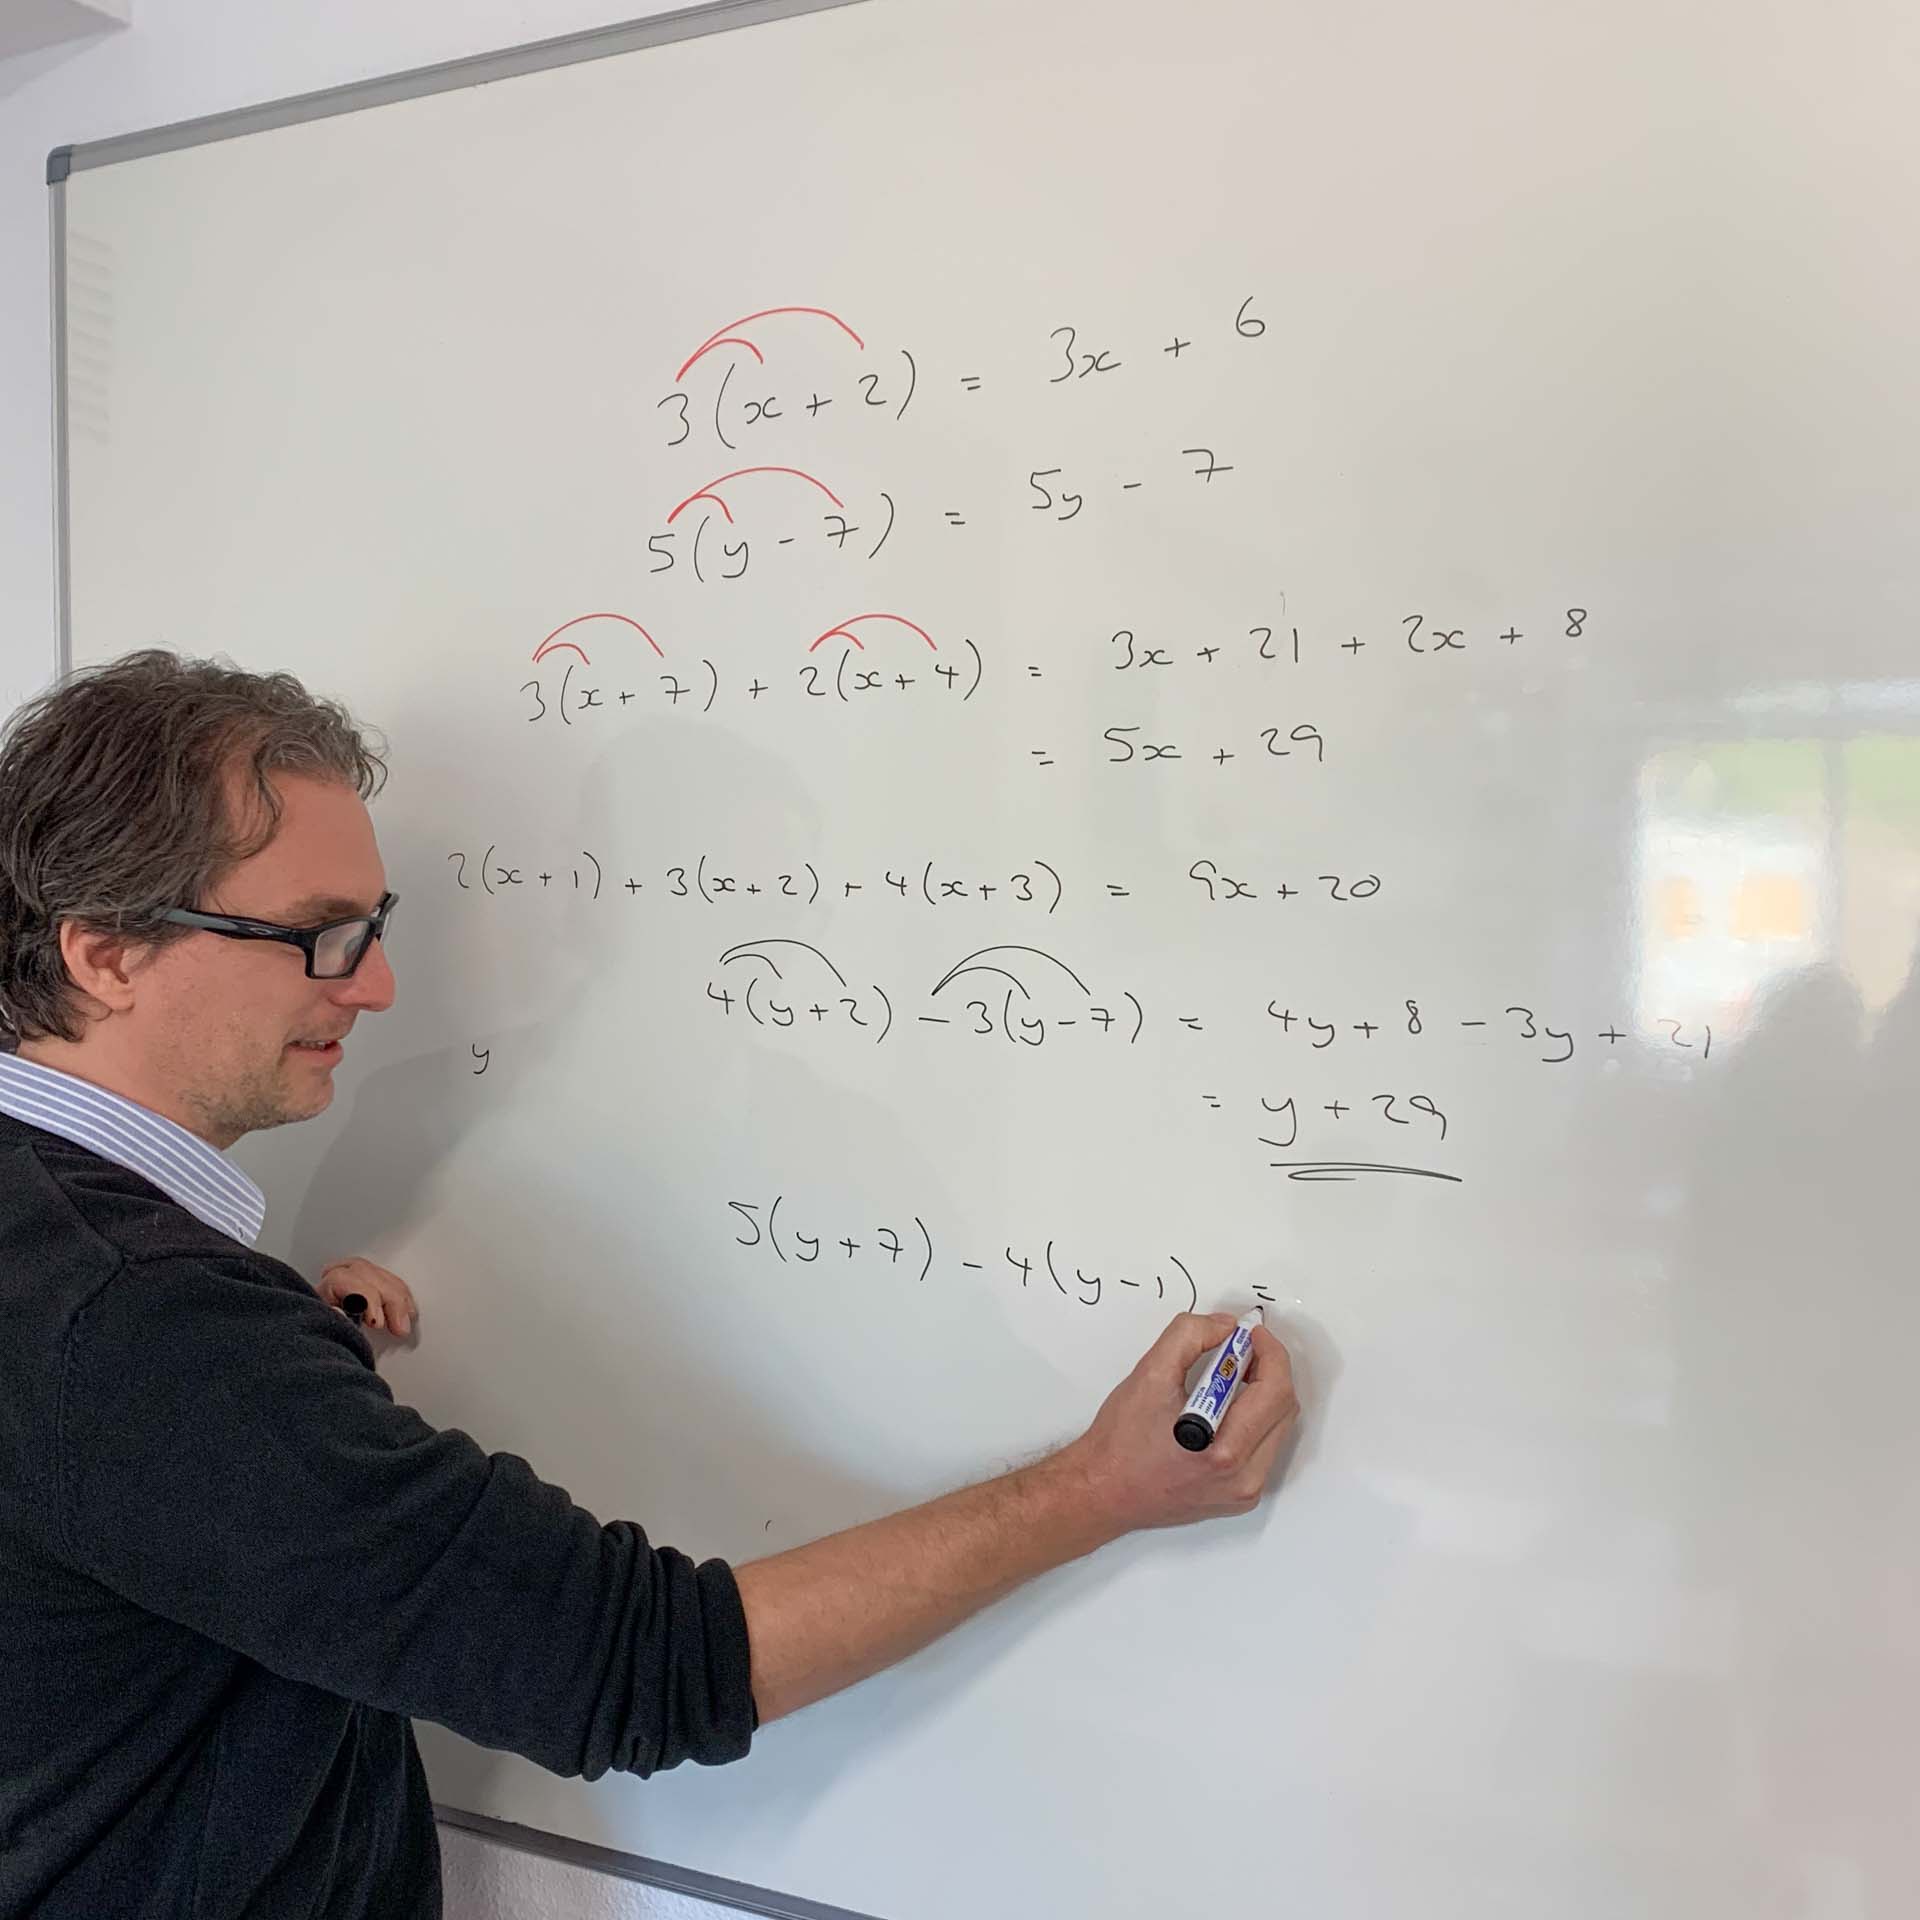 3(x + 2) = 3x + 6
5(y - 7) = 5y - 7
3(x + 7) + 2(x + 4) = 3x + 21 + 2x + 8
= 5x + 29
2(x + 1) + 3(x + 2) + 4(x + 3) = 9x + 20
4(y + 2) - 3(y - 7) = 4y + 8 - 3y + 21
y
= y + 29
5(y + 7) - 4(y - 1) =
BIC